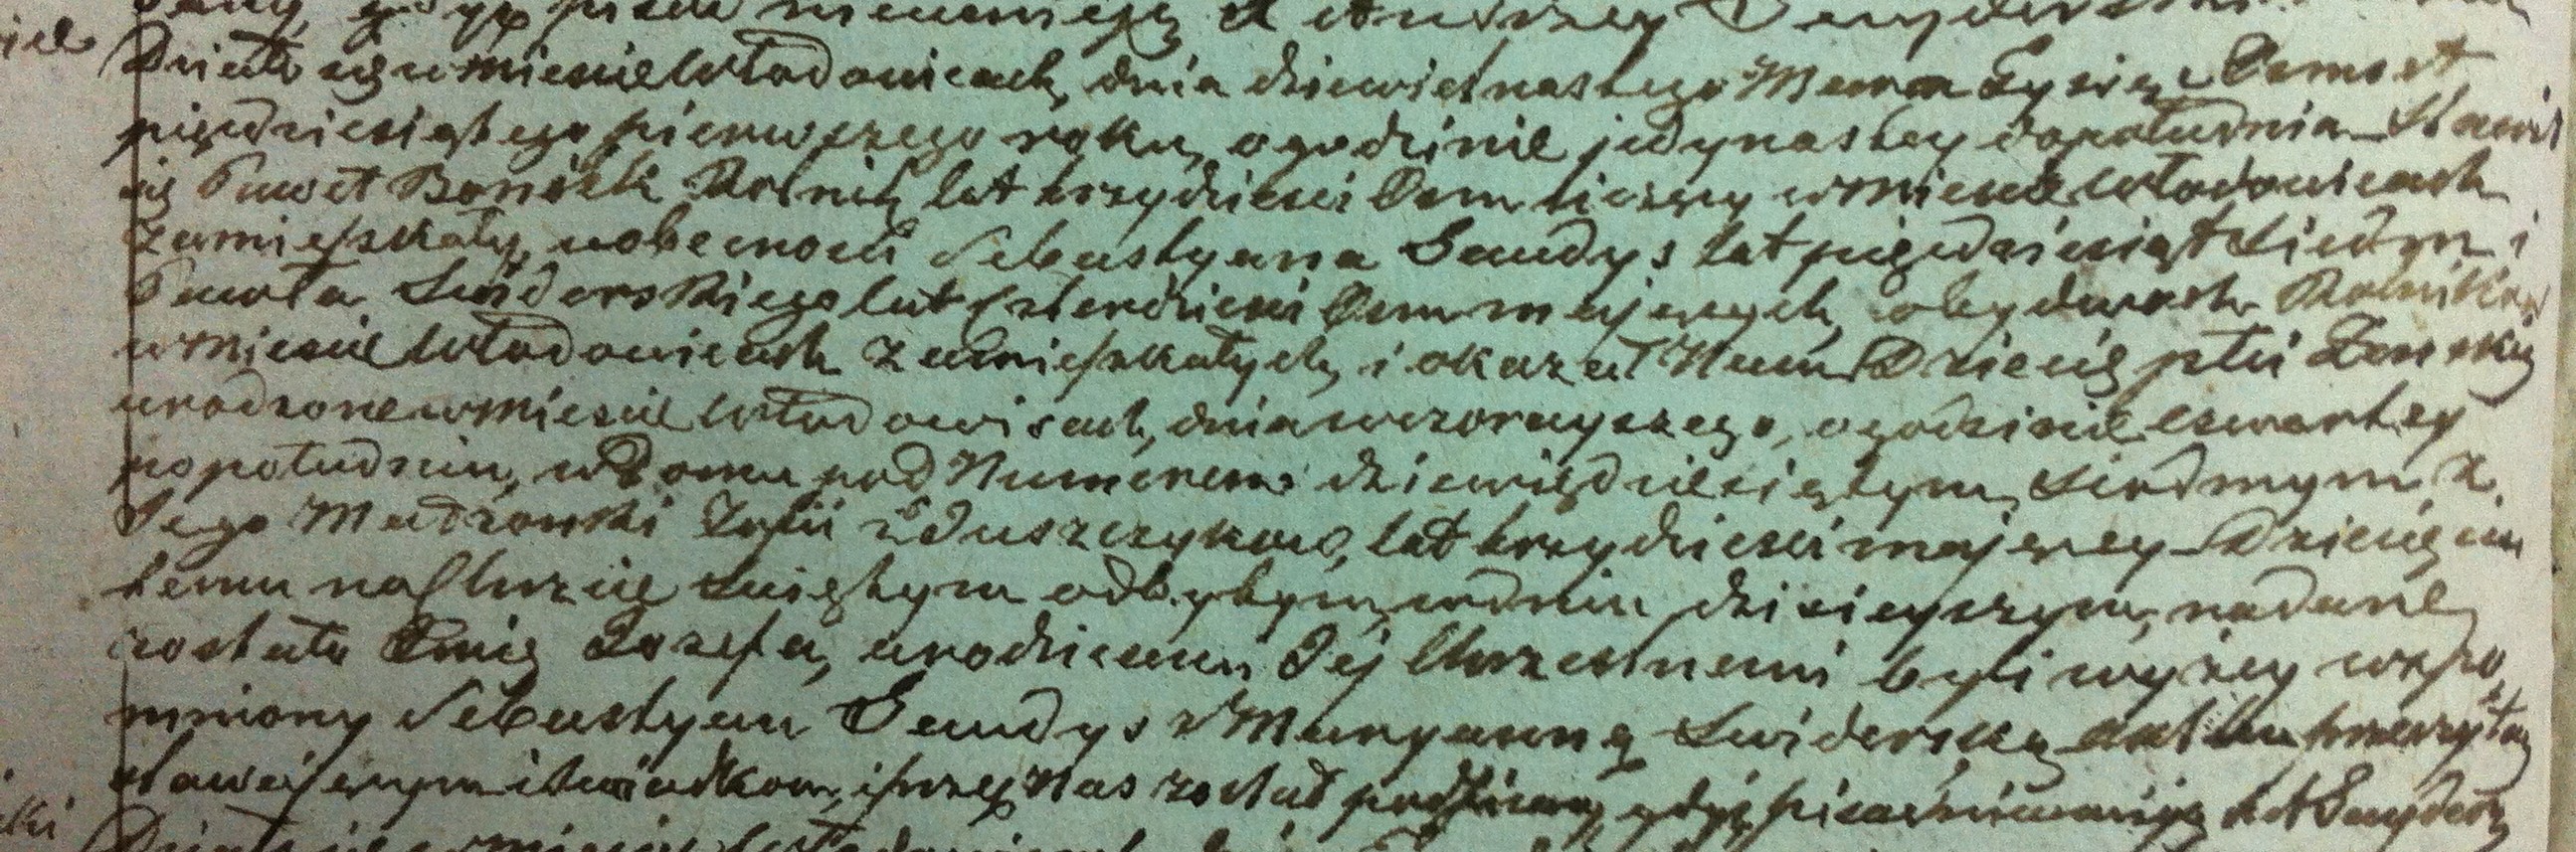 pisać nieumieją X Andrzey
Działo się w Mieście Włodowicach, dnia dziewiętnastego Marca Tysiąc Osmset
pięćdziesiątego pierwszego roku, o godzinie jedynastey dopołudnia Stawił
się Paweł Bonisik Rolnik lat trzydzieści Osm liczący w Mieście Włodowicach
Zamieszkały, w obecności Sebastyana Gaudys lat pięćdziesiąt Siedm i
Pawła Swiderskiego lat Czterdzieści Osm mających, obydwoch Rolników
w Mieście Włodowicach Zamieszkałych, i okazał Nam Dziecię płci Zenskiey
urodzone w Mieście Włodowicach, dnia wczorayszego, o godzinie czwartey
popołudniu, w Domu pod Numerem dziewięćdziesiątym Siodmym z
Jego Małzonki Zofii z Duszczykow, lat trzydzieści mającey Dziecięciu
temu na Chrzcie Swiętym odbytym w dniu dzisieyszym, nadane
zostało Imię Jozefa, a rodzicami Jej Chrzestnemi byli wyżey wspo
mniony Sebastyan Gaudys z Maryanną Swiderską Akt ten przeczytany
Stawającym i Swiadkom, i przez Nas został podpisany, gdyż pisać nieumieją
Działo się w Mieście Włodowicach